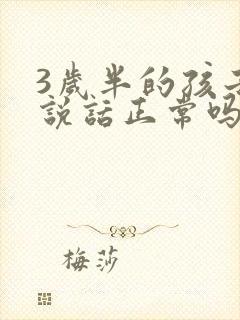 3歲半的孩子
說話正常嗎
梅莎